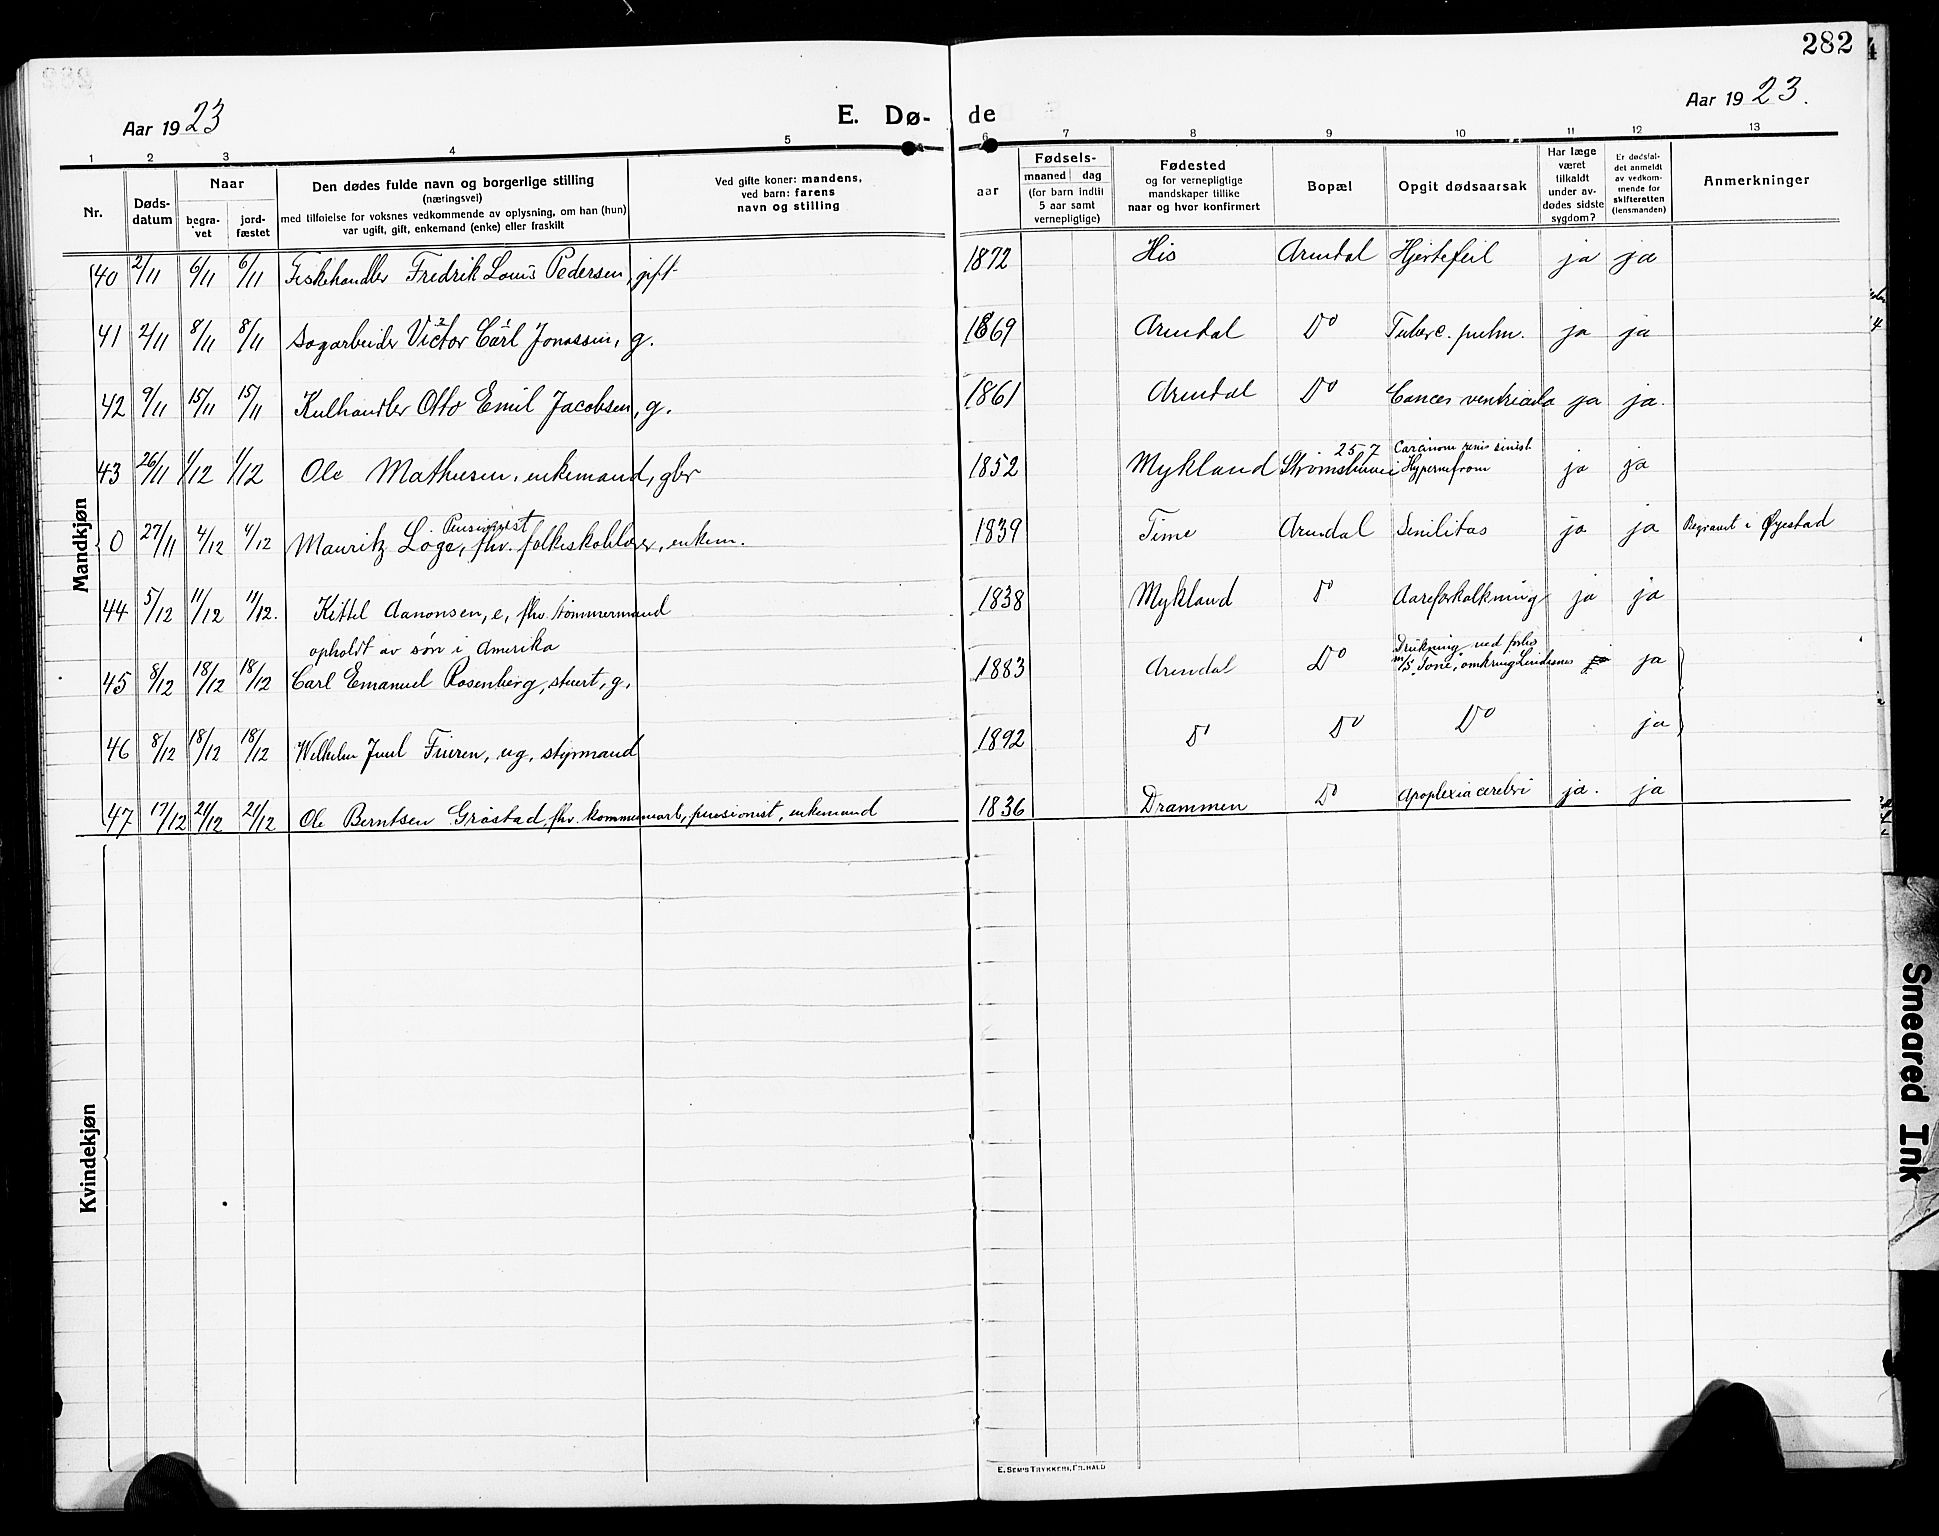 282
Aar 1923
E. Dø-
de
Aar 1923.
1 2 3 4 5 6 7 8 9 10 11 12 13
Nr.
Døds-
datum
Naar
begra-
vet
jord-
fæstet
Den dødes fulde navn og borgerlige stilling
(næringsvei)
med tilføielse for voksnes vedkommende av oplysning, om han (hun)
var ugift, gift, enkemand (enke) eller fraskilt
Ved gifte koner: mandens,
ved barn: farens
navn og stilling
aar
Fødsels-
maaned dag
(for barn indtil
5 aar samt
vernepligtige)
Fødested
og for vernepligtige
mandskaper tillike
naar og hvor konfirmert
Bopæl
Opgit dødsaarsak
Har læge
været
tilkaldt
under av-
dødes sidste
sygdom?
Er dødsfal-
det anmeldt
av vedkom-
mende for
skifteretten
(lensmanden)
Anmerkninger
Mandkjøn
40 2/11 6/11 6/11 Fiskehandler Fredrik Louis Pedersen, gift 1872 His Arendal Hjertefeil ja ja
41 2/11 8/11 8/11 Sagarbeider Victor Carl Jonassen, g. 1869 Arendal Do Tuberc. pulm. ja ja
42 9/11 15/11 15/11 Kulhandler Otto Emil Jacobsen, g. 1861 Arendal Do Cancer ventriculi ja ja.
257 Carcinom renis sinist.
43 26/11 1/12 1/12 Ole Mathisen, enkemand, gbr 1852 Mykland Strømsbuvei Hypernefrom ja ja
Pensionist
0 27/11 4/12 4/12 Mauritz Löge, fhv. folkeskolelærer, enkem. 1839 Time Arendal Senilitas ja ja Begravet i Øyestad
44 5/12 11/12 11/12. Kittel Aanonsen, e, fhv. tømmermand 1838 Mykland Do Aareforkalkning ja ja
opholdt av søn i Amerika
Drukning ved forlis
45 8/12 18/12 18/12 Carl Emanuel Rosenberg, stuert, g. 1883 Arendal Do m/S "Tone", omkring Lindesnes ja ja
46 8/12 18/12 18/12 Wilhelm Juul ug, styrmand 1892 Do Do Do ja
47 17/12 21/12 21/12 Ole Berntsen Gråstad, fhv. pensionist, enkemand 1836 Drammen Do Apoplexia cerebri ja. ja
Kvindekjøn
E. Sem's Trykkeri, Fr.hald
Smeared Ink